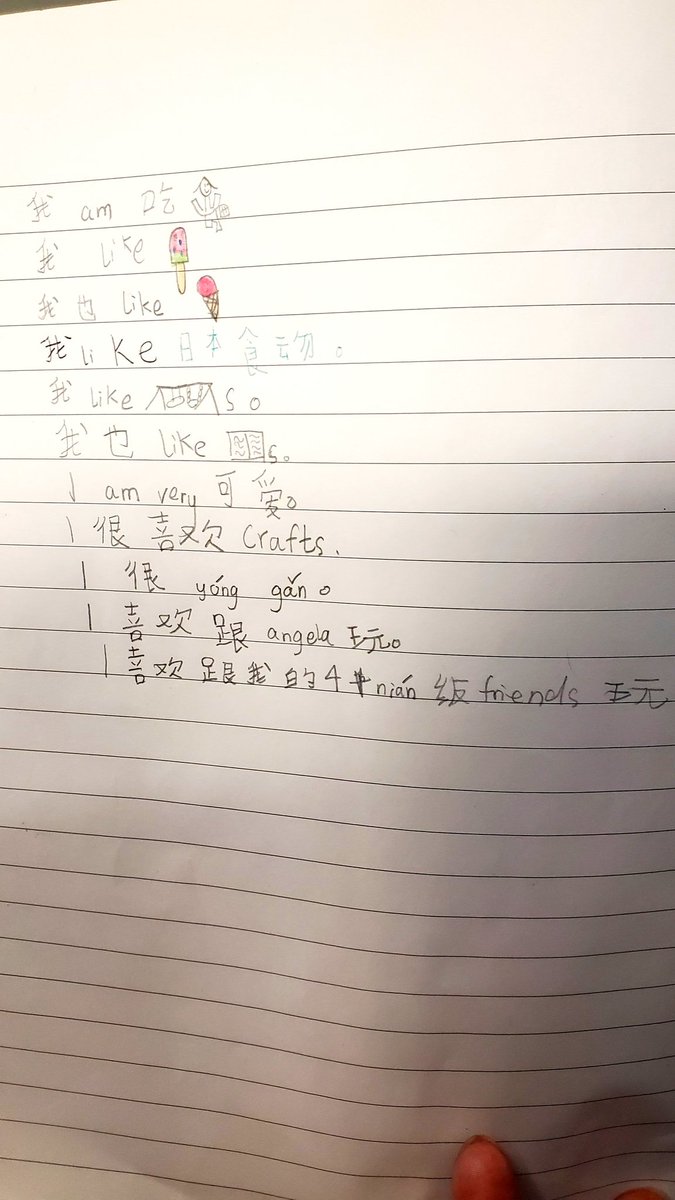 我 am 吃
我 like
我也 like
我 like 日本食。
我 like s。
我也 like s。
I am very 可爱。
I 很喜欢 Crafts.
I 很 yóng gǎn。
I 喜欢跟 angela 玩。
I 喜欢跟我的4 nián 级 friends 玩